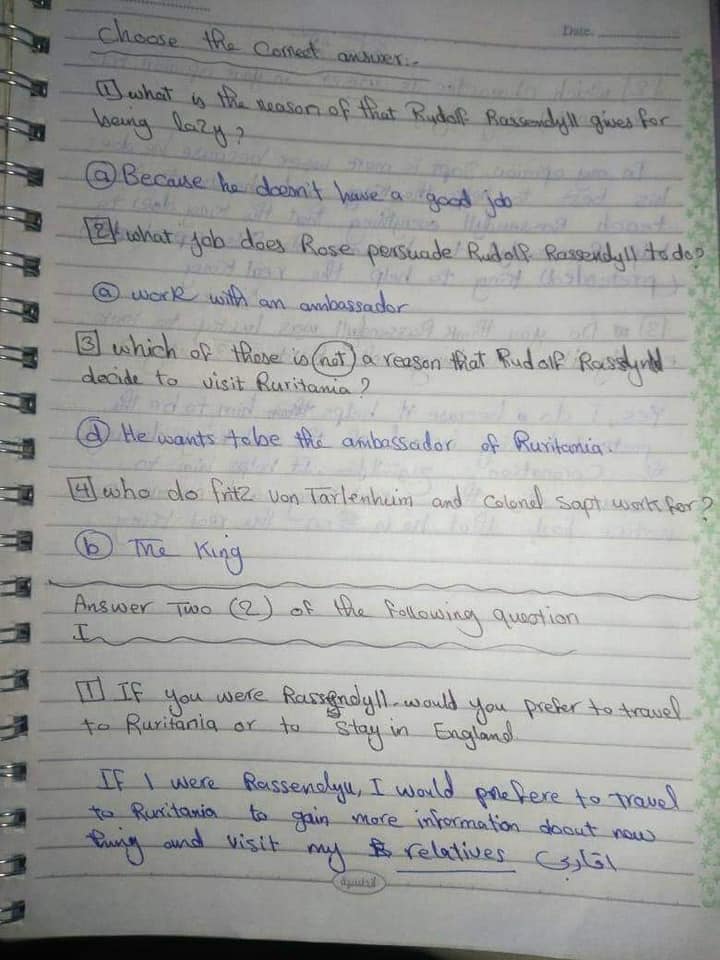 Date:
choose the Correct answer:-
[1] what is the reason of that Rudolf Rassendyll gives for
being lazy?
(a) Because he doesn't have a good job
[2] what job does Rose persuade Rudolf Rassendyll to do?
(a) work with an ambassador
[3] which of these is (not) a reason that Rudolf Rassdynll
decide to visit Ruritania?
(d) He wants to be the ambassador of Ruritania.
[4] who do fritz von Tarlenheim and Colonel Sapt work for?
(b) The King
Answer Two (2) of the following question
I
[1] If you were Rassendyll would you prefer to travel
to Ruritania or to stay in England
If I were Rassendyll, I would prefere to travel
to Ruritania to gain more information about new
thing and visit my relatives اقاربي